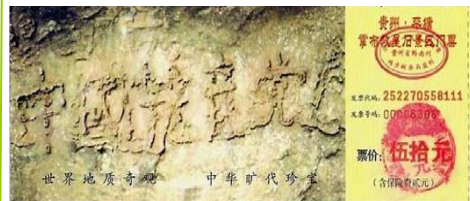 中國共产党
世界地质奇观 中华旷代珍宝
贵州·平塘
掌布藏字石景区门票
贵州省黔南州
发票代码: 252270558111
发票号码: 00006306
票价: 伍拾元
(含保险费贰元)